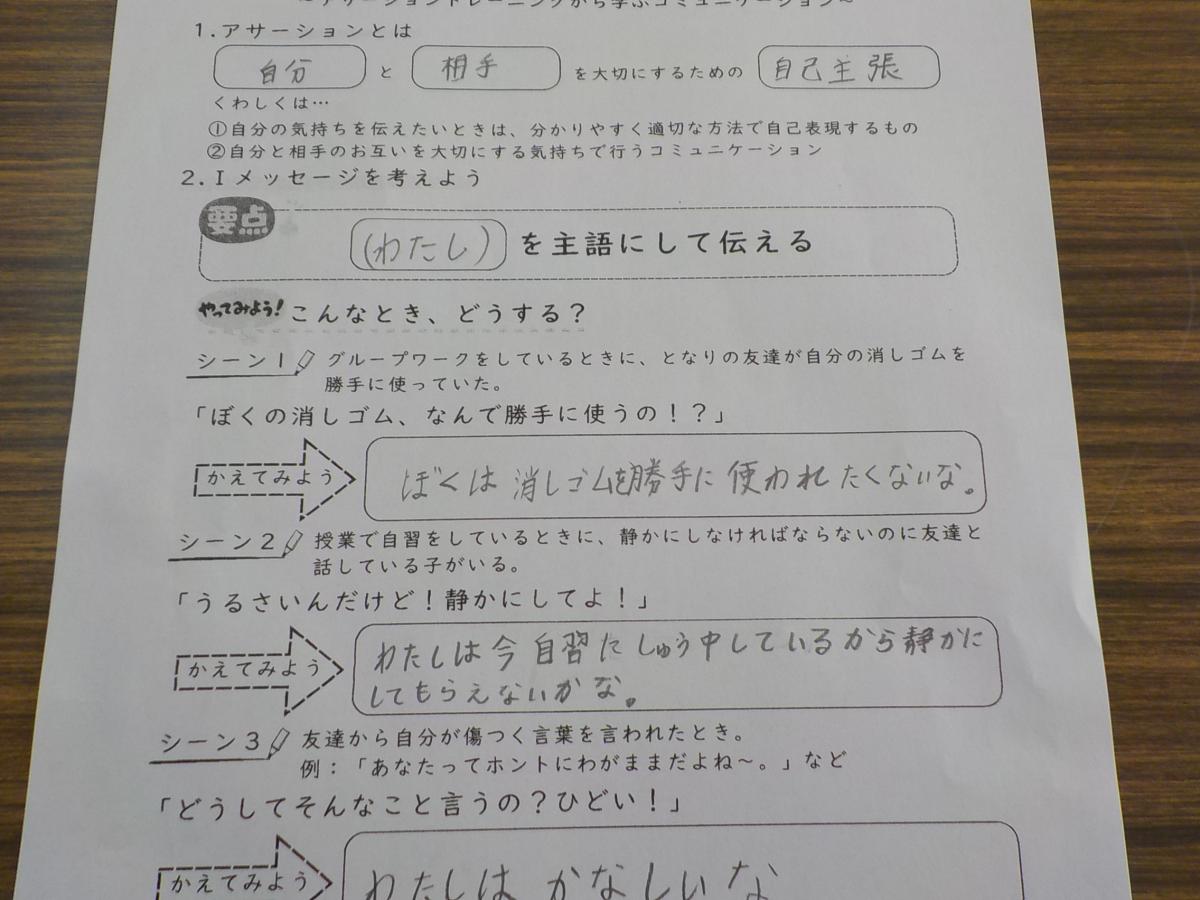 ～アサーショントレーニングから学ぶコミュニケーション～
1.アサーションとは
自分 と 相手 を大切にするための 自己主張
くわしくは…
①自分の気持ちを伝えたいときは、分かりやすく適切な方法で自己表現するもの
②自分と相手のお互いを大切にする気持ちで行うコミュニケーション
2.Iメッセージを考えよう
要点
(わたし) を主語にして伝える
やってみよう! こんなとき、どうする?
シーン1 グループワークをしているときに、となりの友達が自分の消しゴムを
勝手に使っていた。
「ぼくの消しゴム、なんで勝手に使うの!?」
かえてみよう ぼくは消しゴムを勝手に使われたくないな。
シーン2 授業で自習をしているときに、静かにしなければならないのに友達と
話している子がいる。
「うるさいんだけど!静かにしてよ!」
わたしは今自習に しゅう中しているから静かに
かえてみよう
してもらえないかな。
シーン3 友達から自分が傷つく言葉を言われたとき。
例:「あなたってホントにわがままだよね～。」など
「どうしてそんなこと言うの?ひどい!」
かえてみよう わたしは かなしいな